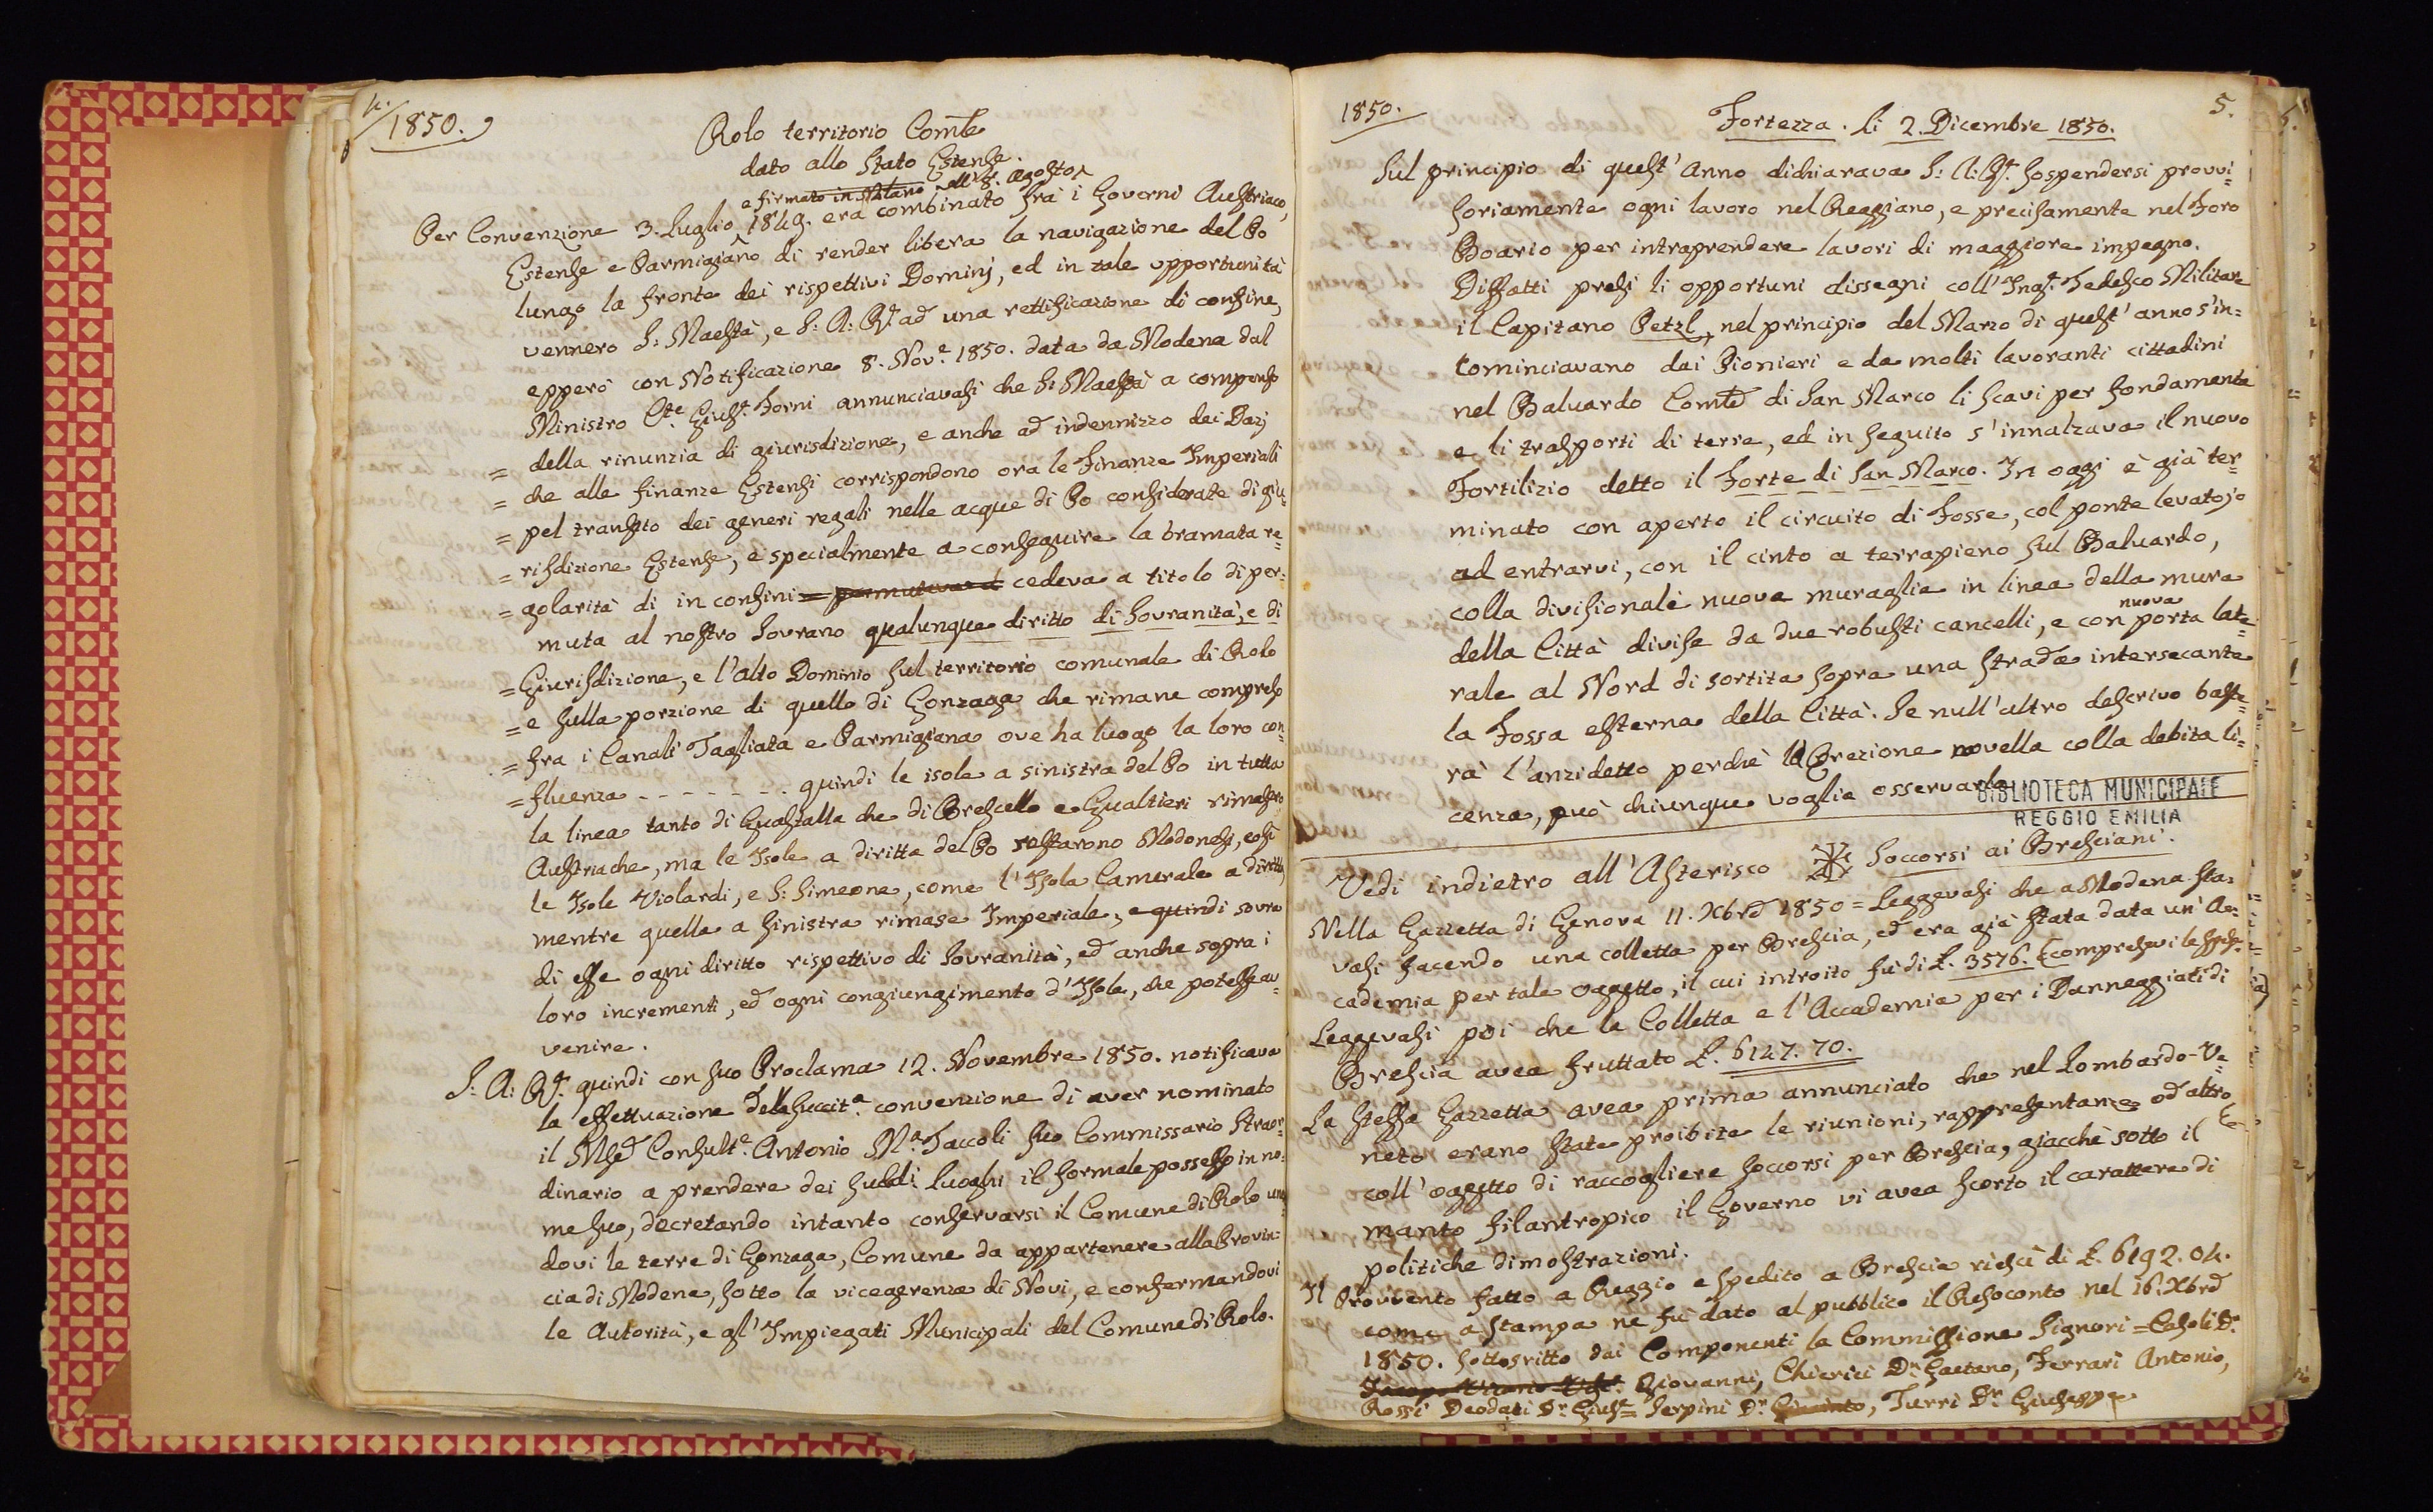 4.
1850.
Rolo territorio Com.le
dato allo Stato Estense
e firmato in Milano all' 8. Agosto
Per Convenzione 3. Luglio 1849. era combinato frà i Governi Austriaco,
Estense e Parmigiano di render libera la navigazione del Po
lungo la fronte dei rispettivi Dominj, ed in tale opportunità
vennero S: Maestà, e S: A: R.le ad una rettificazione di confine,
epperò con Notificazione 8. Nov.e 1850. data da Modena dal
Ministro C.te Gius.e Forni annunciavasi che S: Maestà a compenso
= della rinunzia di giurisdizione, e anche ad indennizzo dei Dazj
= che alle finanze Estensi corrispondono ora le Finanze Imperiali
= pel transito dei generi regali nelle acque di Po considerate di giu=
= risdizione Estense, e specialmente a conseguire la bramata re=
= golarità di in confini = permutava cedeva a titolo di per=
muta al nostro Sovrano qualunque diritto di Sovranità, e di
= Giurisdizione, e l'alto Dominio sul territorio comunale di Rolo
= e sulla porzione di quello di Gonzaga che rimane compreso
= fra i Canali Tagliata e Parmigiana ove ha luogo la loro con=
= fluenza - - - - - - - quindi le isole a sinistra del Po in tutta
la linea tanto di Guastalla che di Brescello e Gualtieri rimasero
Austriache, ma le Isole a diritta del Po restarono Modonesi, così
le Isole Violardi, e S: Simeone, come l'Isola Camerale a diritta
mentre quella a sinistra rimase Imperiale, e quindi sovra
di esse ogni diritto rispettivo di Sovranità, ed anche sopra i
loro incrementi, ed ogni congiungimento d'Isole, che potesse av=
venire.
S: A: R.le quindi con suo Proclama 12. Novembre 1850. notificava
la effettuazione della succit.a convenzione di aver nominato
il Consult.e Antonio M.a Taccoli suo Commissario Straor=
dinario a prendere dei sudd.i Luoghi il formale possesso in no=
me suo, decretando intanto conservarsi il Comune di Rolo unen=
dovi le terre di Gonzaga, Comune da appartenere alla Provin=
cia di Modena, sotto la vicegerenza di Novi, e confermandovi
le Autorità, e gl'Impiegati Municipali del Comune di Rolo.
1850.
5.
Fortezza. Li 2. Dicembre 1850.
Sul principio di quest'anno dichiarava S: A: R.le sospendersi provvi=
soriamente ogni lavoro nel Reggiano, e precisamente nel Foro
Boario per intraprendere lavori di maggiore impegno.
Diffatti presi li opportuni dissegni coll'Ing.e Tedesco Militare
il Capitano Petzl, nel principio del Marzo di quest'anno s'in=
cominciavano dai Pionieri e da molti lavoranti cittadini
nel Baluardo Com.le di San Marco li scavi per fondamenta
e li trasporti di terre, ed in seguito s'innalzava il nuovo
Fortilizio detto il Forte di San Marco. In oggi è già ter=
minato con aperto il circuito di Fosse, col ponte levatojo
ad entrarvi, con il cinto a terrapieno sul Baluardo,
colla divisionale nuova muraglia in linea della mura
della Città divise da due robusti cancelli, e con nuova porta late=
rale al Nord di sortita sopra una strada intersecante
la Fossa esterna della Città. Se null'altro descrivo baste=
rà l'anzidetto perchè la Erezione novella colla debita li=
cenza, può chiunque voglia osservarla.
BIBLIOTECA MUNICIPALE
REGGIO EMILIA
Vedi indietro all'Asterisco ※ Soccorsi ai Bresciani.
Nella Gazzetta di Genova 11. Xbre 1850 = Leggevasi che a Modena sta=
vasi facendo una colletta per Brescia, ed era già stata data un'Ac=
cademia per tale oggetto, il cui introito fu di £. 3576. (compresevi le spese)
Leggevasi poi che la Colletta e l'Accademia per i Danneggiati di
Brescia avea fruttato £. 6127. 70.
La stessa Gazzetta avea prima annunciato che nel Lombardo-Ve=
neto erano state proibite le riunioni, rappresentanze od altro
coll'oggetto di raccogliere soccorsi per Brescia, giacchè sotto il
manto filantropico il Governo vi avea scorto il carattere di
politiche dimostrazioni.
Il Provvento fatto a Reggio e spedito a Brescia riescì di £. 6192. 04.
come a stampa ne fu dato al pubblico il Resoconto nel 16. Xbre
1850. sottoscritto dai Componenti la Commissione Signori = Casoli D.r
Giovanni, Chierici D.r Gaetano, Ferrari Antonio,
Rossi Deodati D.r Gius.e Serpini D.r, Turri D.r Giuseppe